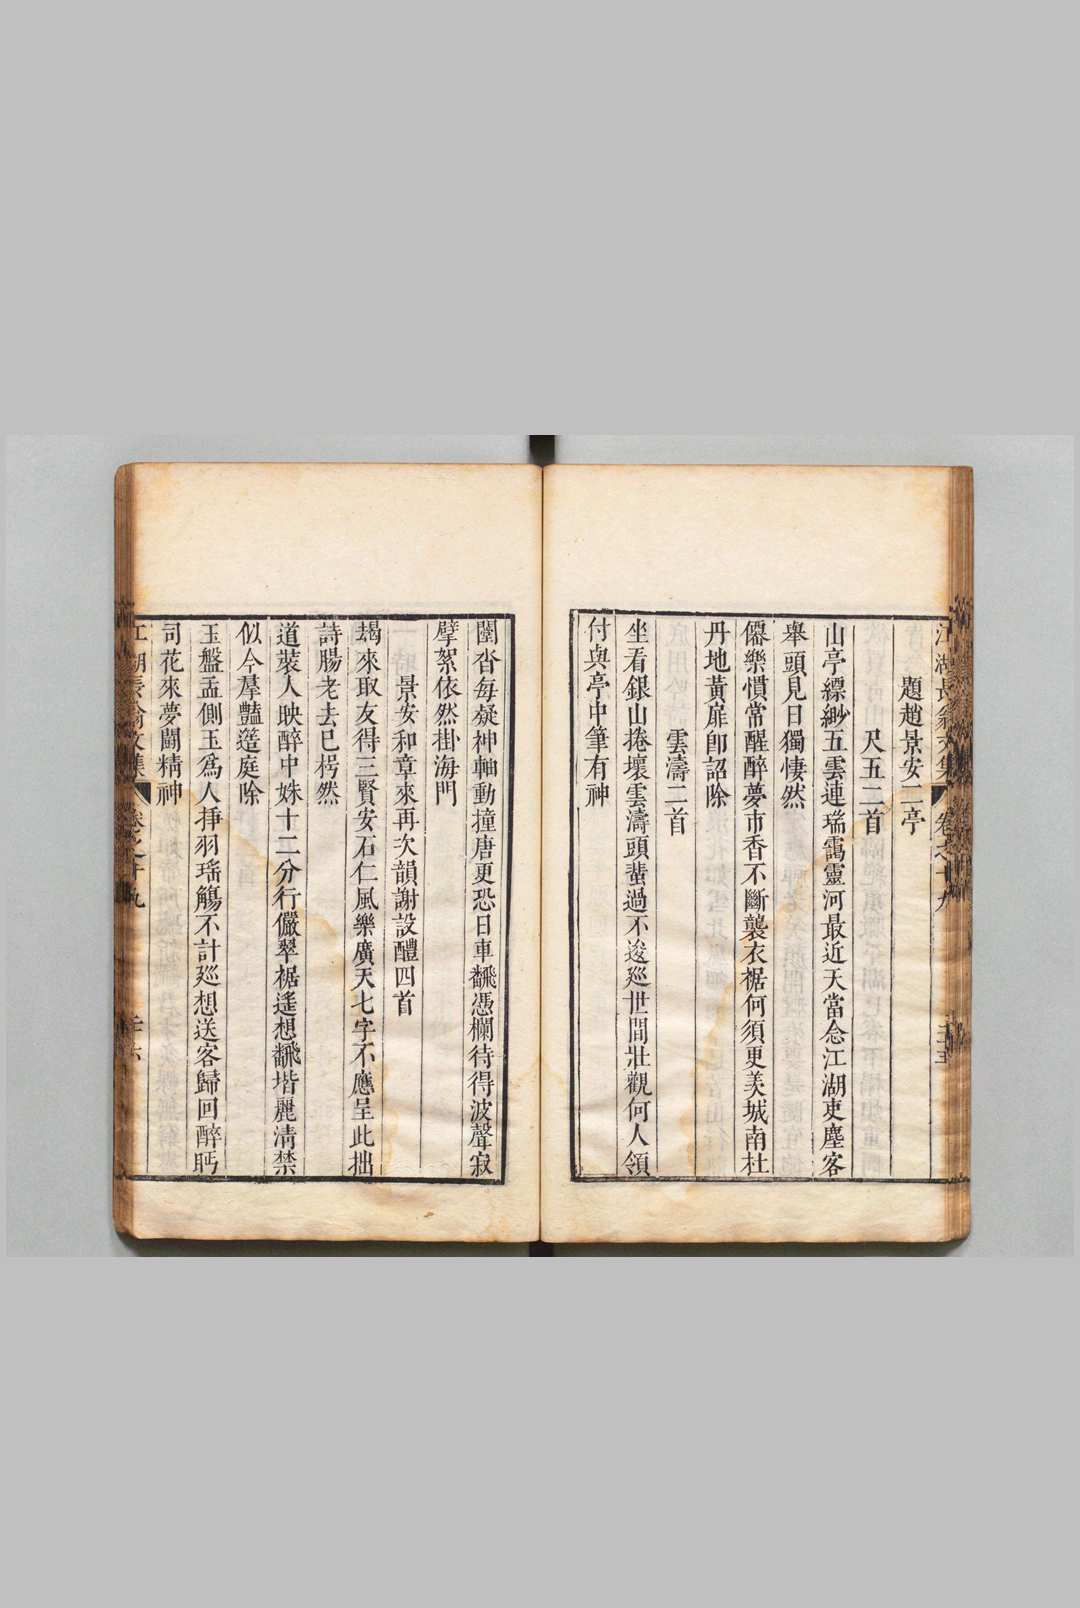 江湖長翁文集 卷之十九 三十五
題趙景安二亭
尺五二首
山亭縹緲五雲連瑞靄靈河最近天當念江湖吏塵客
舉頭見日獨悽然
僊樂慣常醒醉夢市香不斷襲衣裾何須更羡城南杜
丹地黃扉卽詔除
雲濤二首
坐看銀山捲壞雲濤頭蜚過不逡巡世間壯觀何人領
付與亭中筆有神
闇沓每凝神軸動撞唐更恐日車飜憑欄待得波聲寂
擘絮依然掛海門
景安和章來再次韻謝設醴四首
朅來取友得三賢安石仁風樂廣天七字不應呈此拙
詩腸老去已枵然
道裝人映醉中姝十二分行儼翠裾遙想飜堦麗淸禁
似今羣豔簉庭除
玉盤盂側玉爲人挿羽瑤觴不計廵想送客歸回醉眄
司花來夢鬪精神
江湖長翁文集 卷之十九 三十六